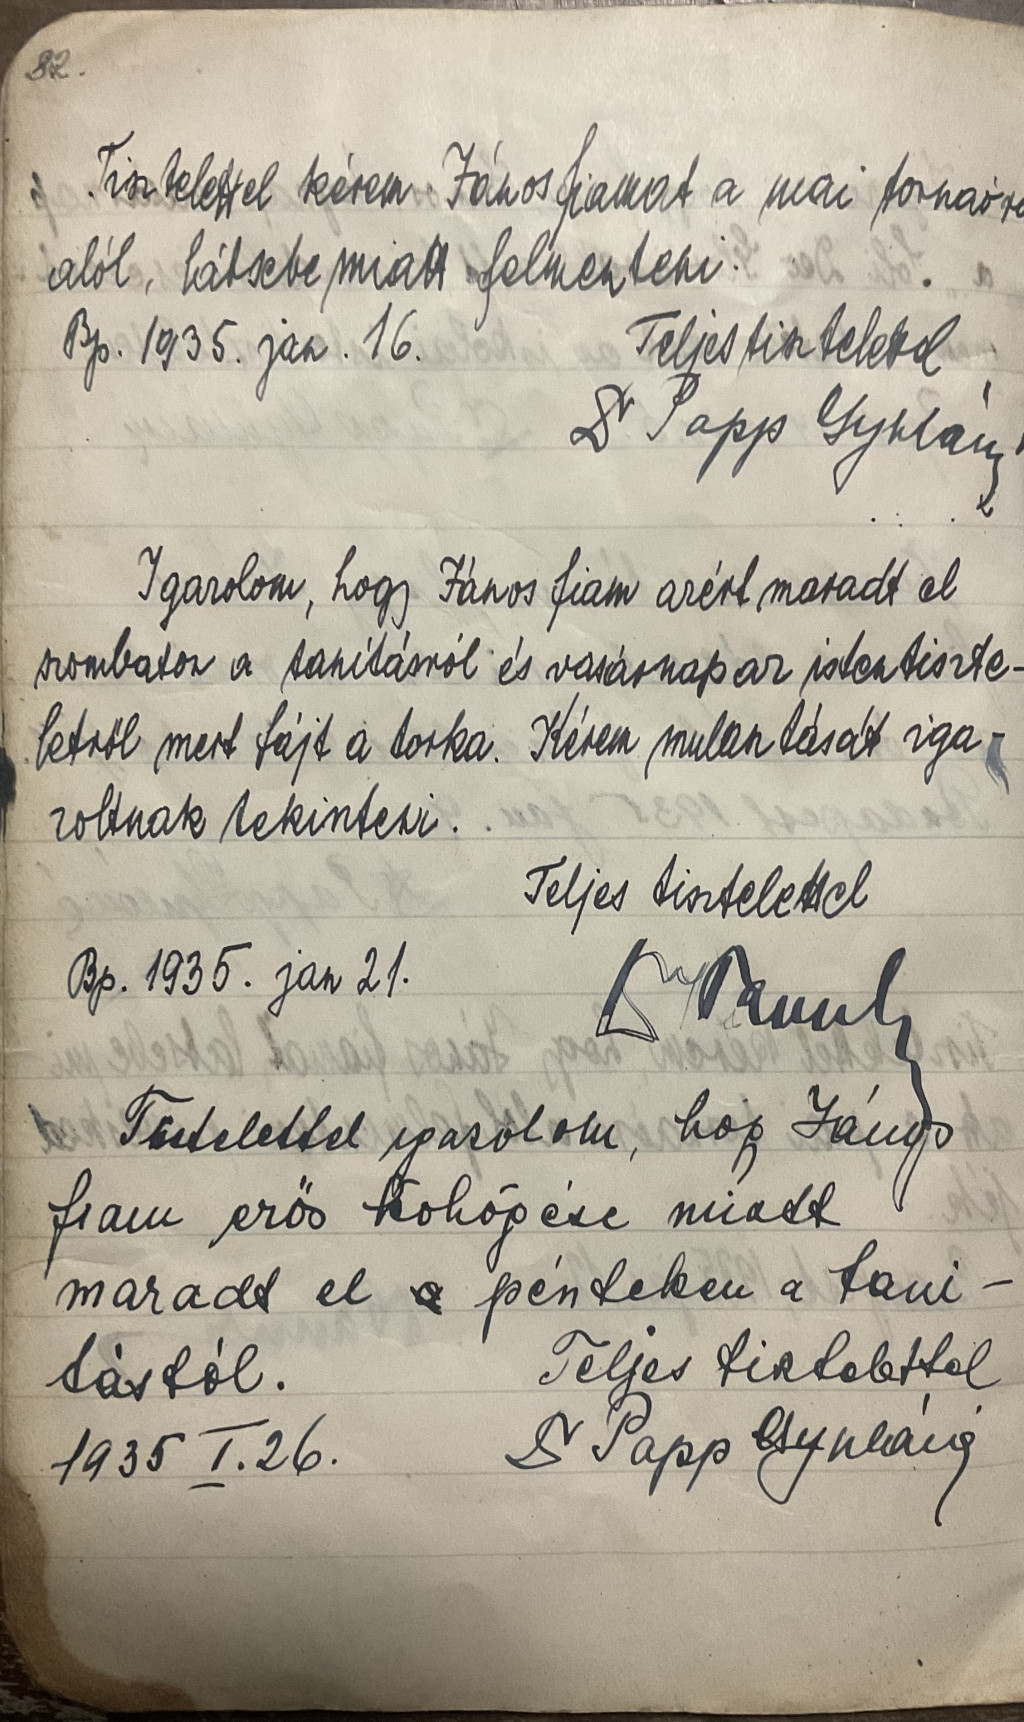 82.
Tisztelettel kérem János fiamat a mai tornaóra
alól, lábsebe miatt felmenteni.
Bp. 1935. jan. 16.
Teljes tisztelettel
Dr Papp
Igazolom, hogy János fiam azért maradt el
szombaton a tanításról és vasárnap az istentiszte-
letről mert fájt a torka. Kérem mulasztását iga-
zoltnak tekinteni.
Teljes tisztelettel
Bp. 1935. jan 21.
Tisztelettel igazolom, hogy János
fiam erős köhögése miatt
maradt el a pénteken a tani-
tástól.
Teljes tisztelettel
1935 I. 26.
Dr Papp